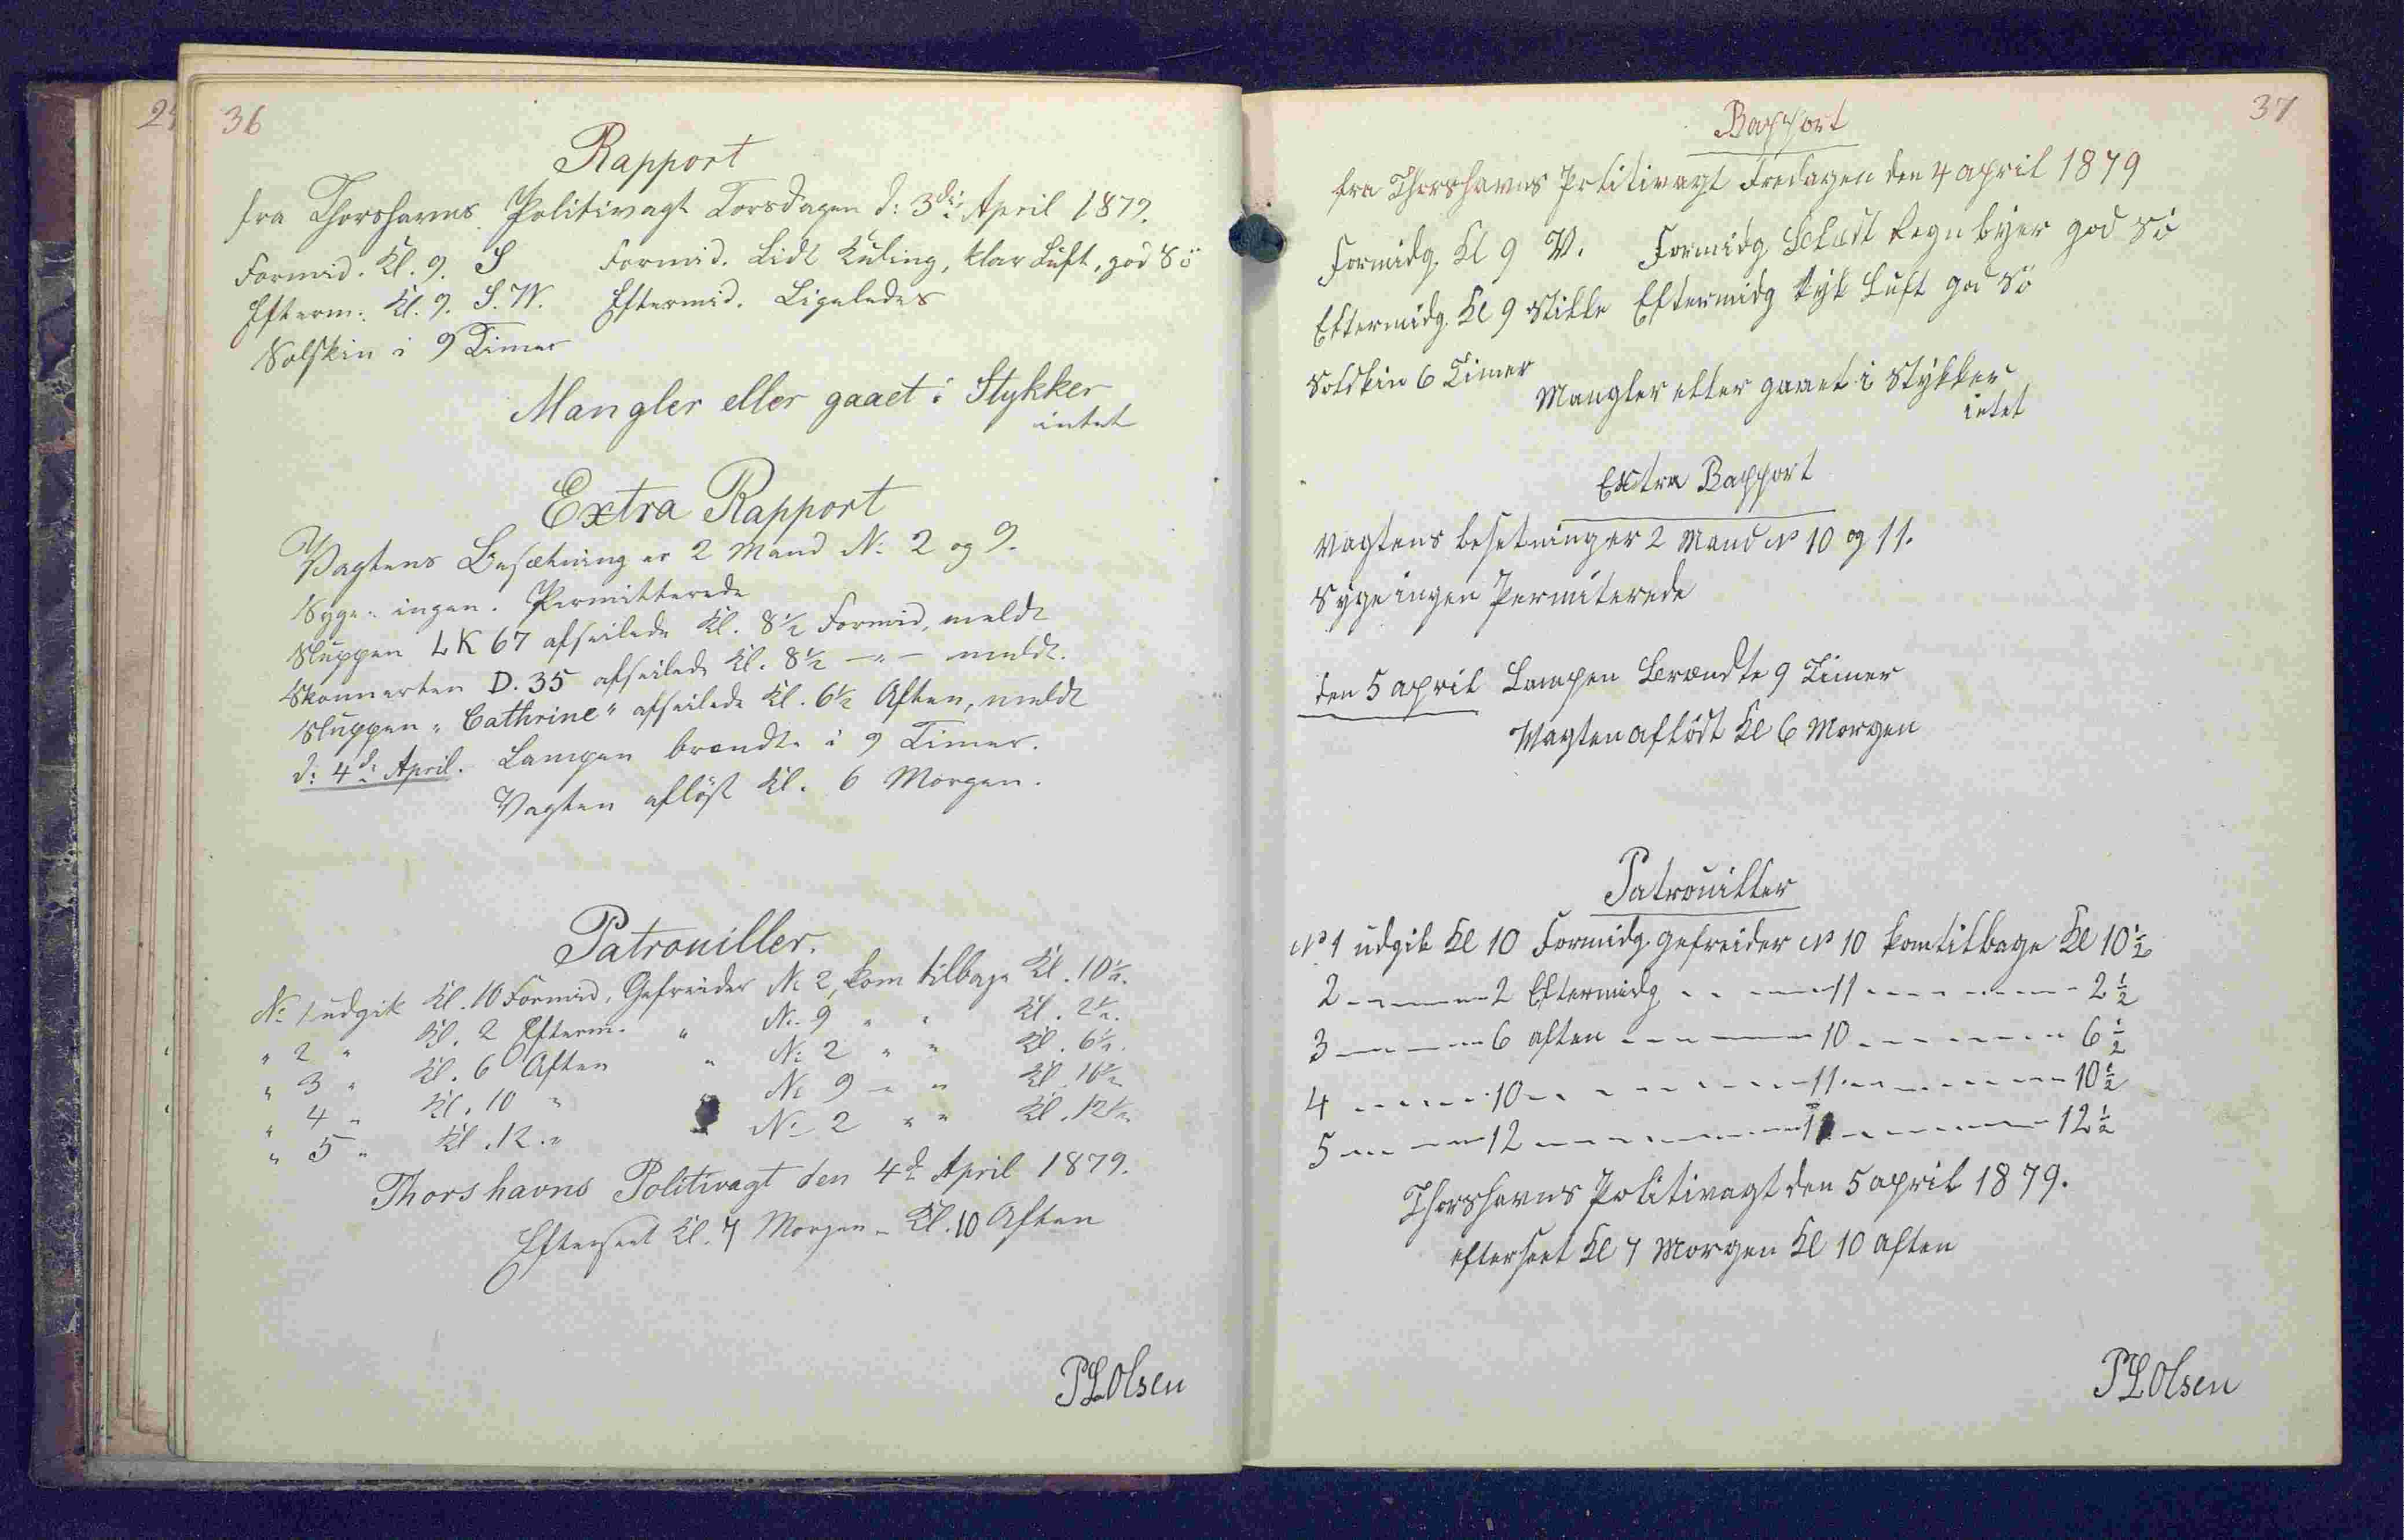 36
Rapport
fra Thorshavns Politivagt Torsdagen d: 3die April 1879.
Formid. Kl. 9. S Formid. Lidt Kuling, klar Luft, god Sö
Efterm. Kl. 9. S.W. Eftermid. Ligeledes
Solskin i 9 Timer
Mangler eller gaaet i Stykker
intet
Extra Rapport
Vagtens Besætning er 2 Mand No 2 og 9.
Syge: ingen. Permitterede
Sluppen LK 67 afseilede Kl. 8½ Formid, meldt
Skonnerten D. 35 afseilede Kl. 8½ -"- meldt.
Sluppen "Cathrine" afseilede Kl. 6½ Aften, meldt
d: 4de April. Lampen brændte i 9 Timer.
Vagten aflöst Kl. 6 Morgen.
Patrouiller.
No 1 udgik Kl. 10 Formid, Gefreider No 2, kom tilbage Kl. 10½.
" 2 " Kl. 2 Efterm. " No 9 " " Kl. 2½.
" 3 " Kl. 6 Aften " No 2 " " Kl. 6½.
" 4 " Kl. 10 " " No 9 " " Kl. 10½
" 5 " Kl. 12. " " No 2 " " Kl. 12½
Thorshavns Politivagt den 4de April 1879.
Efterseet Kl. 7 Morgen - Kl. 10 Aften
PLOlsen
37
Rapport
fra Thorshavns Politivagt Fredagen den 4 april 1879
Formidg. Kl 9 V. Formidg Regn byer god Sö
Eftermidg. Kl 9 Stille Eftermidg tyk Luft god Sö
Solskin 6 Timer
Mangler eller gaaet i Stykker
intet
Extra Rapport
Vagtens besetning er 2 Mand No 10 og 11.
Syge ingen Permiterede
den 5 april Lampen Brændte 9 Timer
Vagten aflöst Kl 6 Morgen
Patrouiller
No 1 udgik Kl 10 Formidg. gefreider No 10 kom tilbage Kl 10½
2 ------ 2 Eftermidg - - ---11 ------- 2½
3 ------ 6 aften ------ 10 ------- 6½
4 ------ 10 -------- 11 ------- 10½
5 ------ 12 -------- ------- 12½
Thorshavns Politivagt den 5 april 1879.
efterseet Kl 7 Morgen Kl 10 aften
PLOlsen